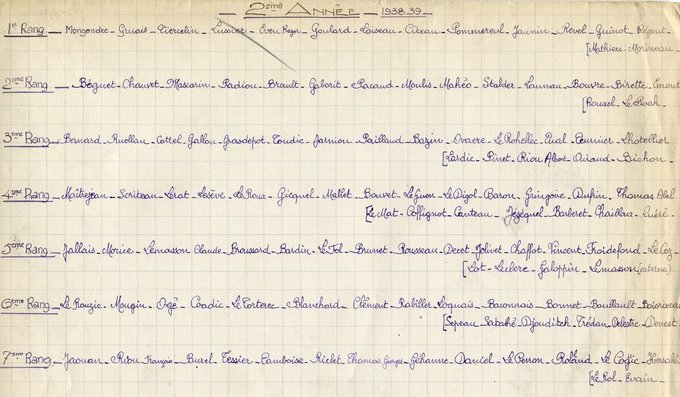 2ème ANNÉE _ 1938-39_
1er Rang _ Mongendre _ Gruais _ Tiercelin _ Lussier _ Even Roger _ Goulard _ Loiseau _ Citeau _ Pommereuil _ Jaunin _ Revel _ Guinot _ Régent
[Mathieu _ Morineau _
2ème Rang _ Béguet _ Chauvet _ Mascarin _ Padiou _ Brault _ Gaborit _ Pacaud _ Moulis _ Mahéo _ Stalder _ Launau _ Bouvre _ Birette _
[Rouael _ Le Boah _
3ème Rang _ Bernard _ Ruellan _ Cottel _ Gallou _ Grosdepot _ Toudic _ Jarniou _ Paillaud _ Bazin _ Ovaere _ Le Rohellec _ Pual _ Fournier _ Lhotellier
[Lardic _ Pinet _ Riou Albert _ Airaud _ Bichon _
4ème Rang _ Maîtrejean _ Soriteau _ Lerat _ Lesève _ Le Roua _ Gicquel _ Mallet _ Bouvet _ Le Guen _ Le Digol _ Baron _ Gringoire _ Dufrin _ Thomas Abel
[Le Mat _ Coffignot _ Cauteau _ Jézéquel _ Barberet _ Chailloux _ Luéré _
5ème Rang _ Jallais _ Morice _ Lemasson Claude _ Broussard _ Bardin _ Le Fol _ Brunet _ Rousseau _ Decet _ Jolivet _ Chaffot _ Vincent _ Froidefond _ Le Coz _
[Lot _ Leclerc _ Galoppin _ Lemasson (externe)
6ème Rang _ Le Rouzic _ Mougin _ Ogé _ Coadic _ Le Torterec _ Blanchard _ Clément _ Rabiller _ Loquais _ Baconnais _ Bonnet _ Boullault _ Boisriveau
[Sepeau _ Sabathé _ Djouditch _ Trédan _ Delestre _ Denest
7ème Rang _ Jaouan _ Ribu François _ Burel _ Tessier _ Camboise _ Riclet _ Thomas Georges _ Géhanne _ Daniel _ Le Perron _ Rolland _ Le Coğic _ Horsalé
[Le Rol _ Evain _